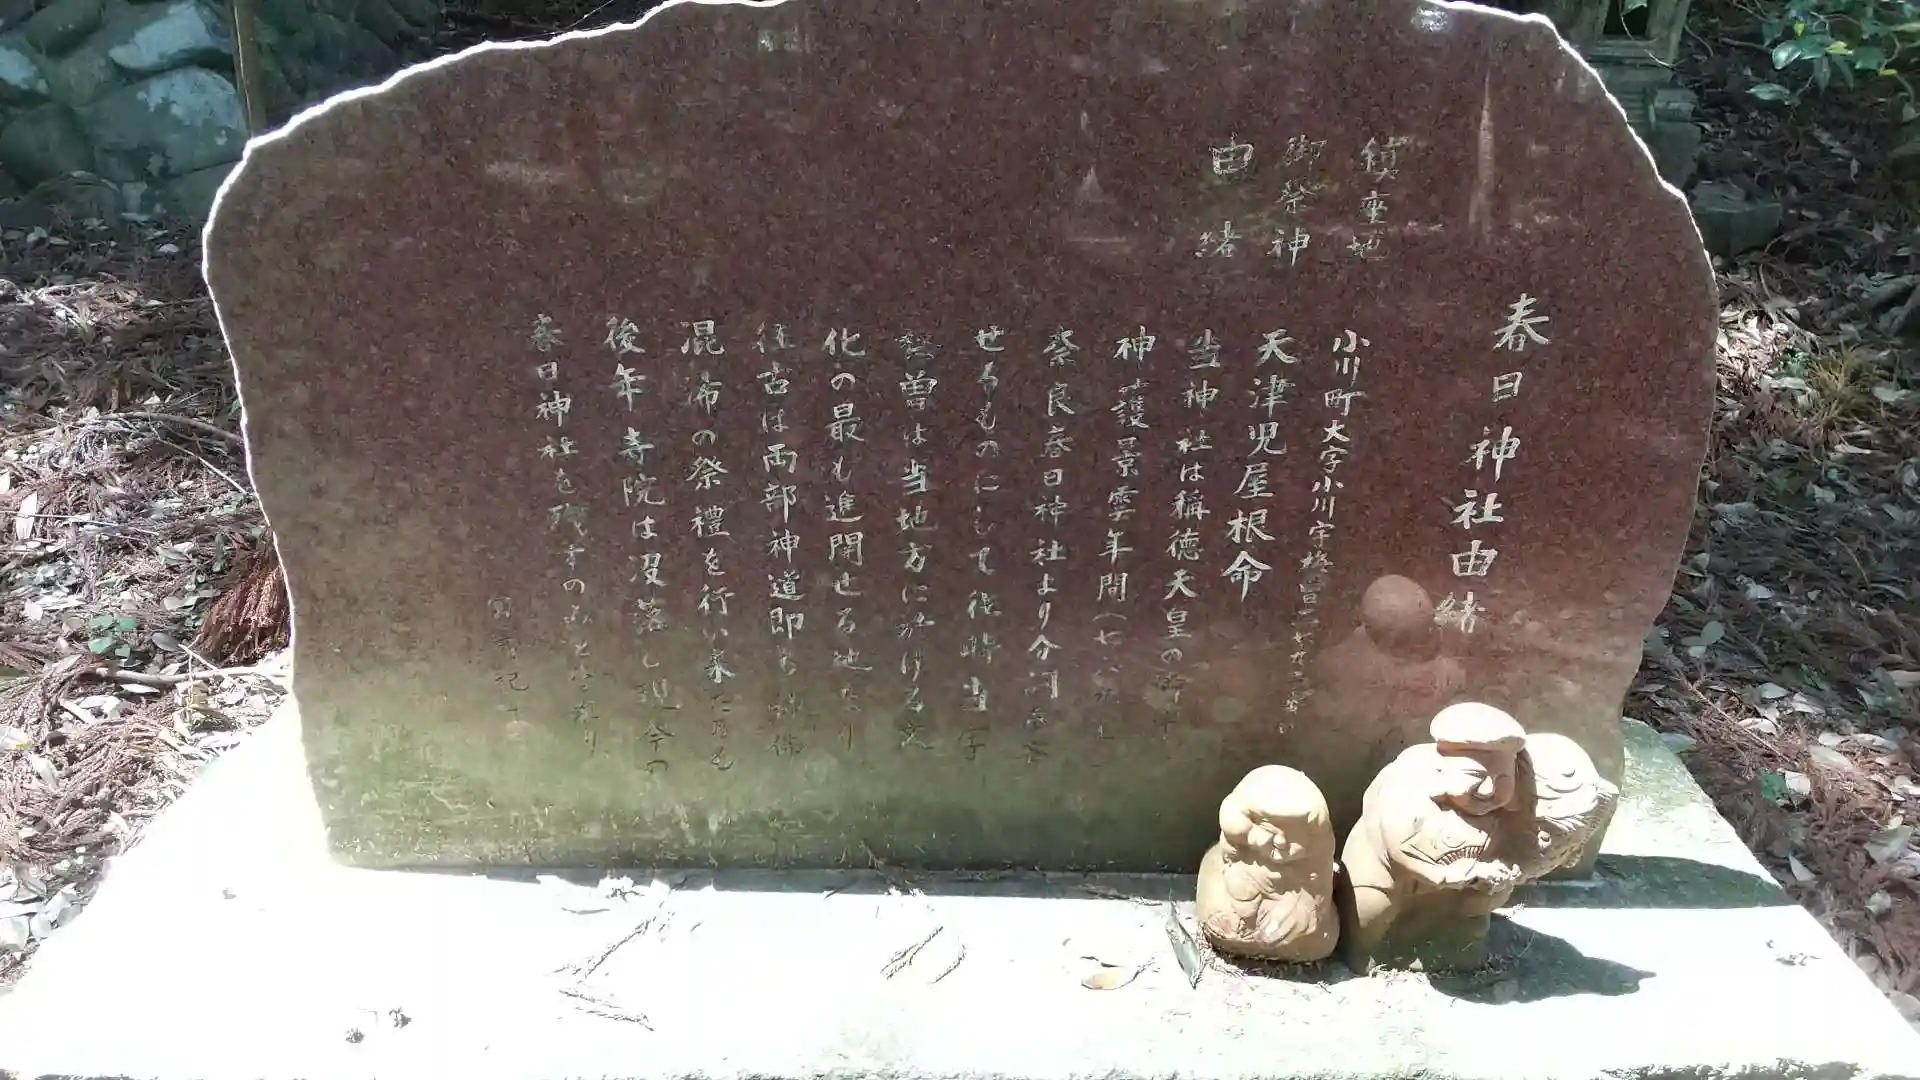 春日神社由緒
鎮座地 小川町大字小川字
御祭神 天津児屋根命
由緒 当神社は稱徳天皇の
神護景雲年間(七
奈良春日神社より分祠
せるものにして往時当
は当地方に於ける
化の最も進開せる地なり
往古は両部神道即ち神佛
混淆の祭禮を行い来たるも
後年寺院は没落し現今の
春日神社を残すのみとなれり